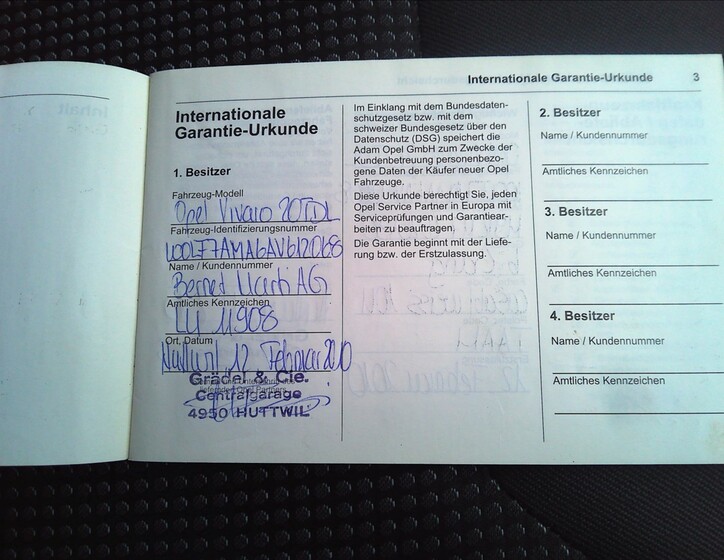 Internationale Garantie-Urkunde 3
Internationale
Garantie-Urkunde
1. Besitzer
Fahrzeug-Modell
Opel Vivaro 2.0TDI
Fahrzeug-Identifizierungsnummer
W0LF7AMA6AV612068
Name / Kundennummer
Bernet Marti AG
Amtliches Kennzeichen
LU 11908
Ort, Datum
12. Februar 2010
Grädel & Cie.
Centralgarage
4950 HUTTWIL
Im Einklang mit dem Bundesdaten-
schutzgesetz bzw. mit dem
schweizer Bundesgesetz über den
Datenschutz (DSG) speichert die
Adam Opel GmbH zum Zwecke der
Kundenbetreuung personenbezo-
gene Daten der Käufer neuer Opel
Fahrzeuge.
Diese Urkunde berechtigt Sie, jeden
Opel Service Partner in Europa mit
Serviceprüfungen und Garantiear-
beiten zu beauftragen.
Die Garantie beginnt mit der Liefe-
rung bzw. der Erstzulassung.
2. Besitzer
Name / Kundennummer
Amtliches Kennzeichen
3. Besitzer
Name / Kundennummer
Amtliches Kennzeichen
4. Besitzer
Name / Kundennummer
Amtliches Kennzeichen